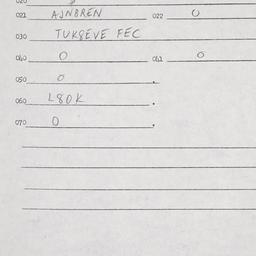 021 AJNBREN 022 0
030 TUKSEVE FEC
040 0 041 0
050 0 .
060 L80K .
070 0 .